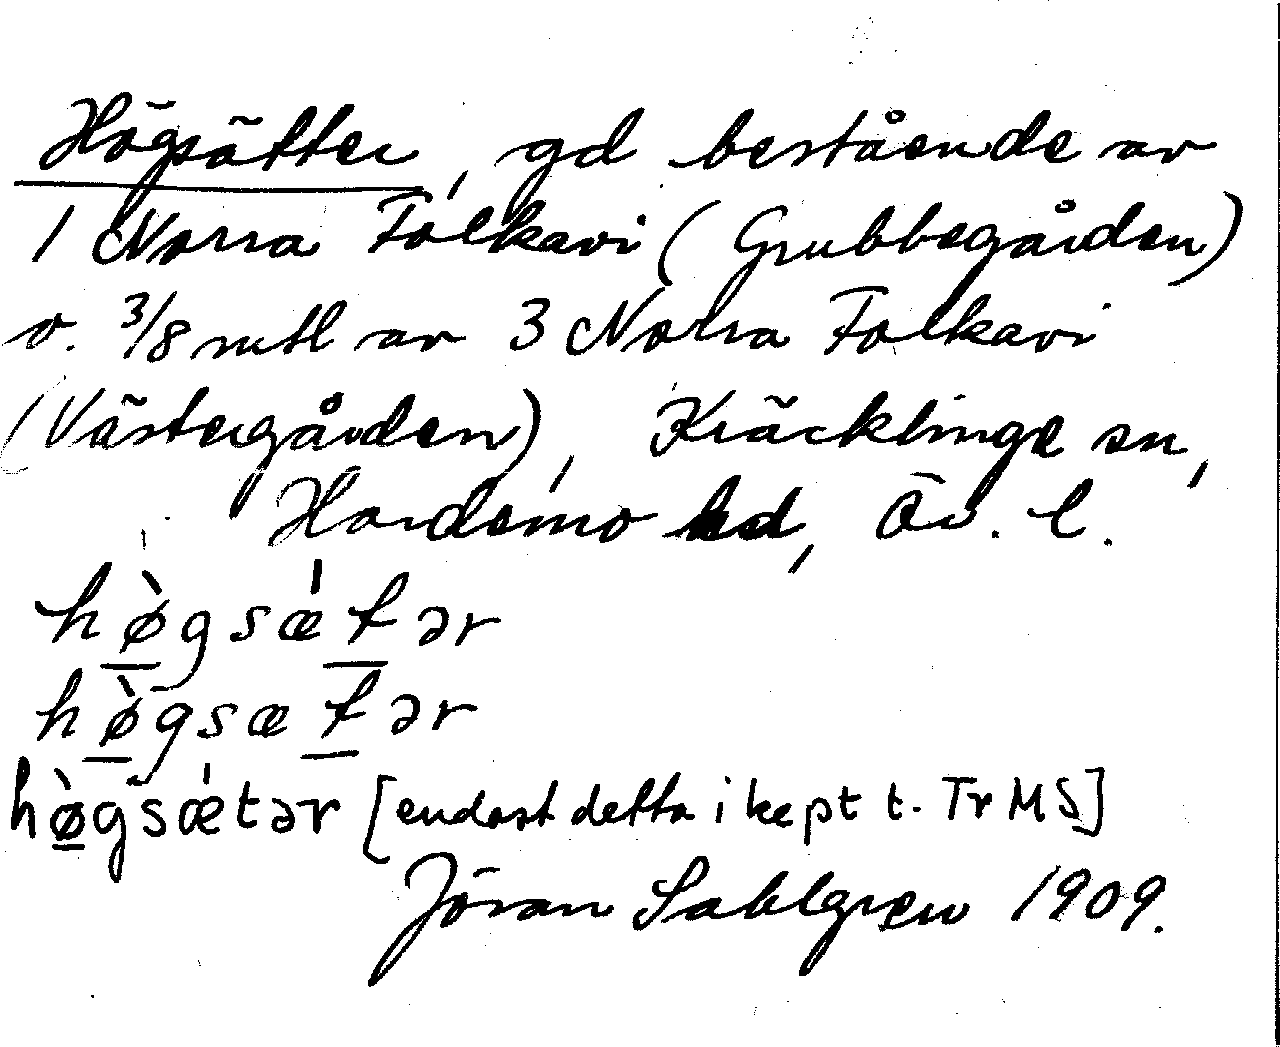 Högsätter, gd bestående av
1 Norra Folkavi (Grubbegården)
o. 3/8 mtl av 3 Norra Folkavi
(Västergården), Kräcklinge sn,
Hardemo hd, Ör. l.
hø̀gsǽtər
hø̀gsætər
hø̀gsǽtər [endast detta i kept t. Tr MS]
Jöran Sahlgren 1909.